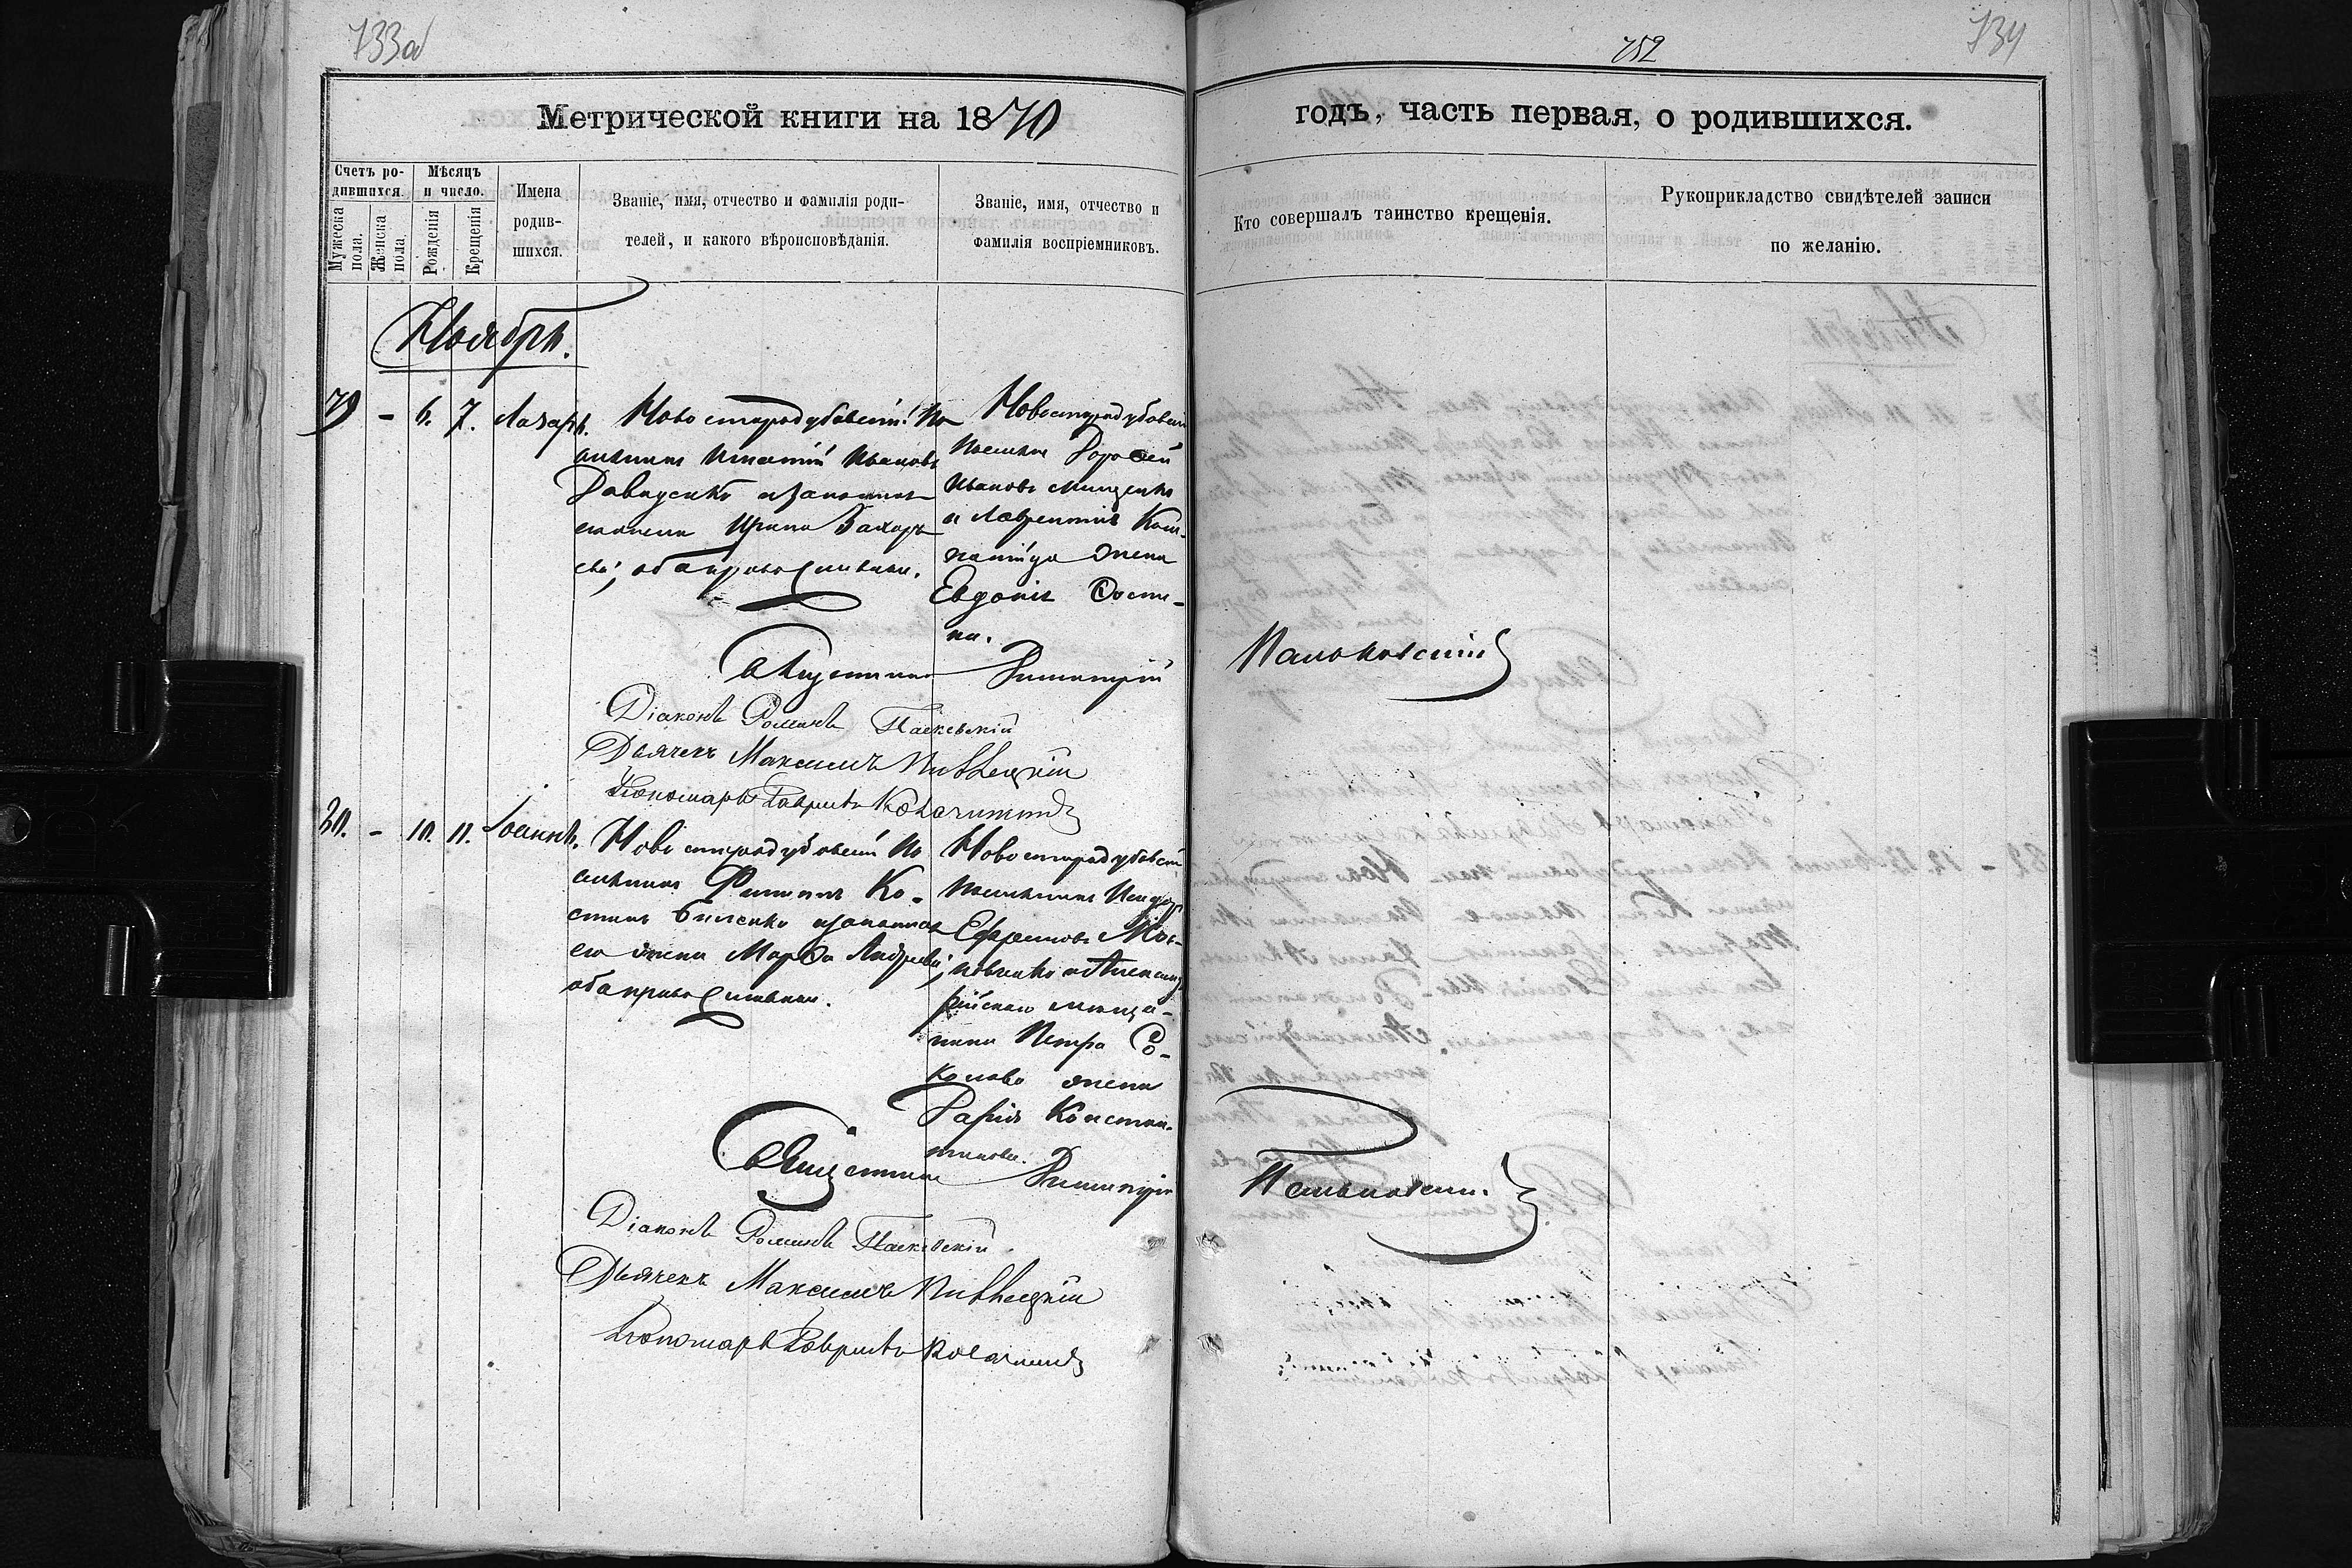 733об
752
734
Метрической книги на 1870
годъ, часть первая, о родившихся.
Счетъ родившихся.
Мужеска пола.
Женска пола.
Мѣсяцъ и число.
Рожденія
Крещенія
Имена
родив-
шихся.
Званіе, имя, отчество и фамилія роди-
телей, и какого вѣроисповѣданія.
Званіе, имя, отчество и
фамилія воспріемниковъ.
Кто совершалъ таинство крещенія.
Рукоприкладство свидѣтелей записи
по желанію.
Ноябрь.
79 - 6. 7. Лазарь.
Новостародубовскій По-
селянинъ Игнатій Ивановъ
Давиденко и законная
его жена Ирина Захарь-
ева, оба православные.
Новостародубовскій
Поселянинъ Дорофей
Ивановъ
и Лаврентія
жена
Евдокія
Священникъ Димитрій Пальковскій
Діаконъ Романъ Паскевскій
Дьячекъ Максимъ
Пономарь Гавріилъ
- 10. 11. Іоаннъ.
Новостародубовскій По-
селянинъ Филиппъ Ко-
стинъ Биленко и законная
его жена Марфа Андреева,
оба православные.
Новостародубовскій
Поселянинъ Исидоръ
Ефремовъ
и Александ-
рійскаго мѣща-
нина Петра Со-
колова жена
Дарія Констан-
тинова.
Священникъ Димитрій Пальковскій.
Діаконъ Романъ Паскевскій
Дьячекъ Максимъ
Пономарь Гавріилъ